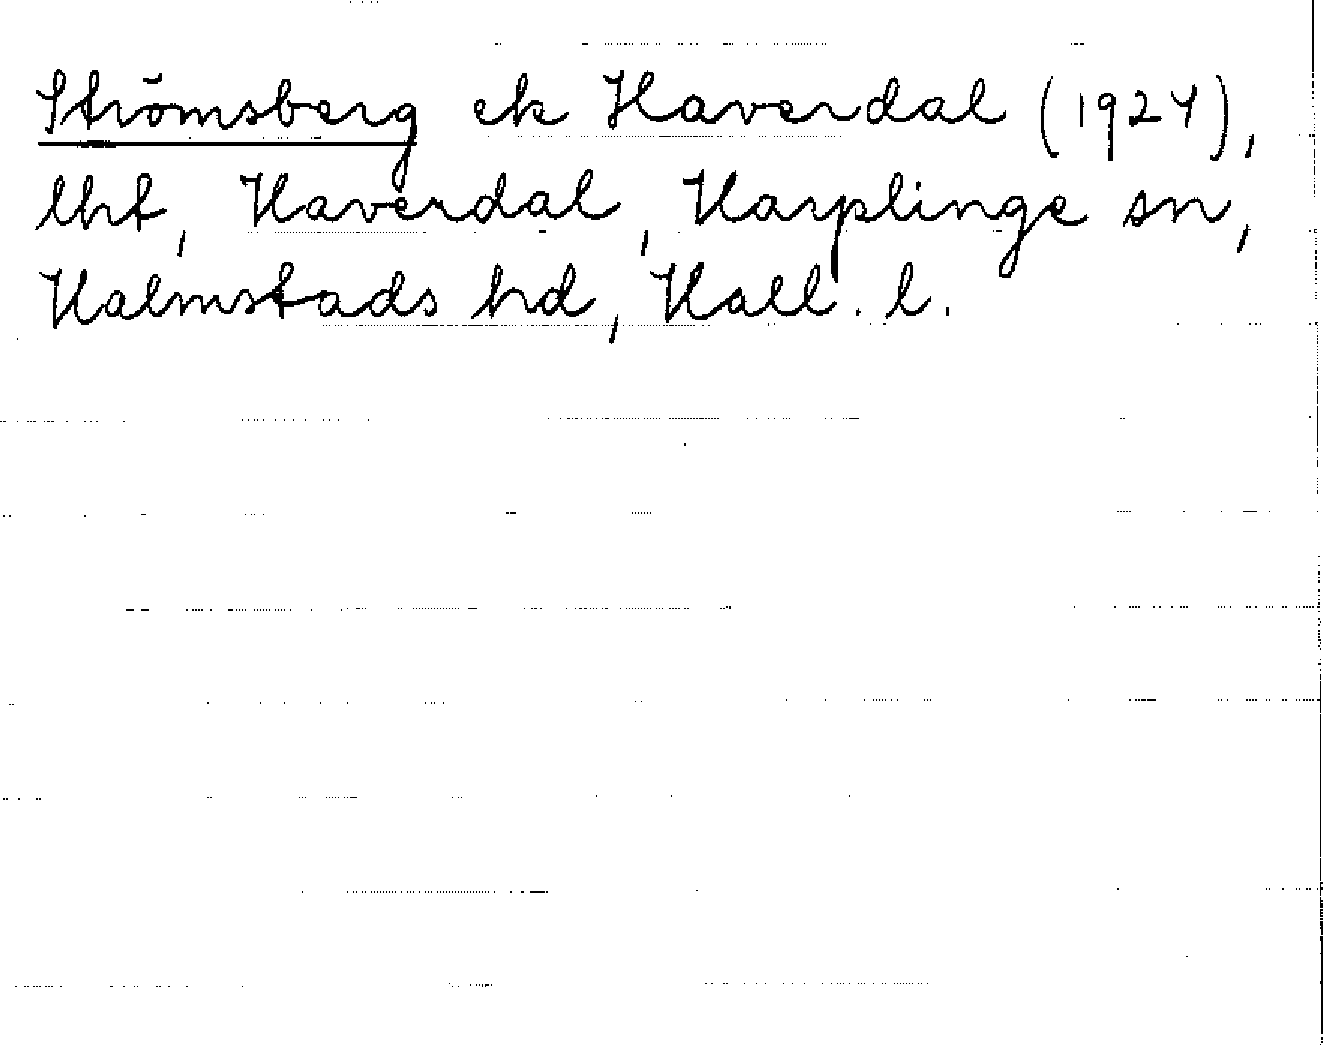 Strömsberg ek Haverdal (1924),
lht, Haverdal, Harplinge sn,
Halmstads hd, Hall. l.